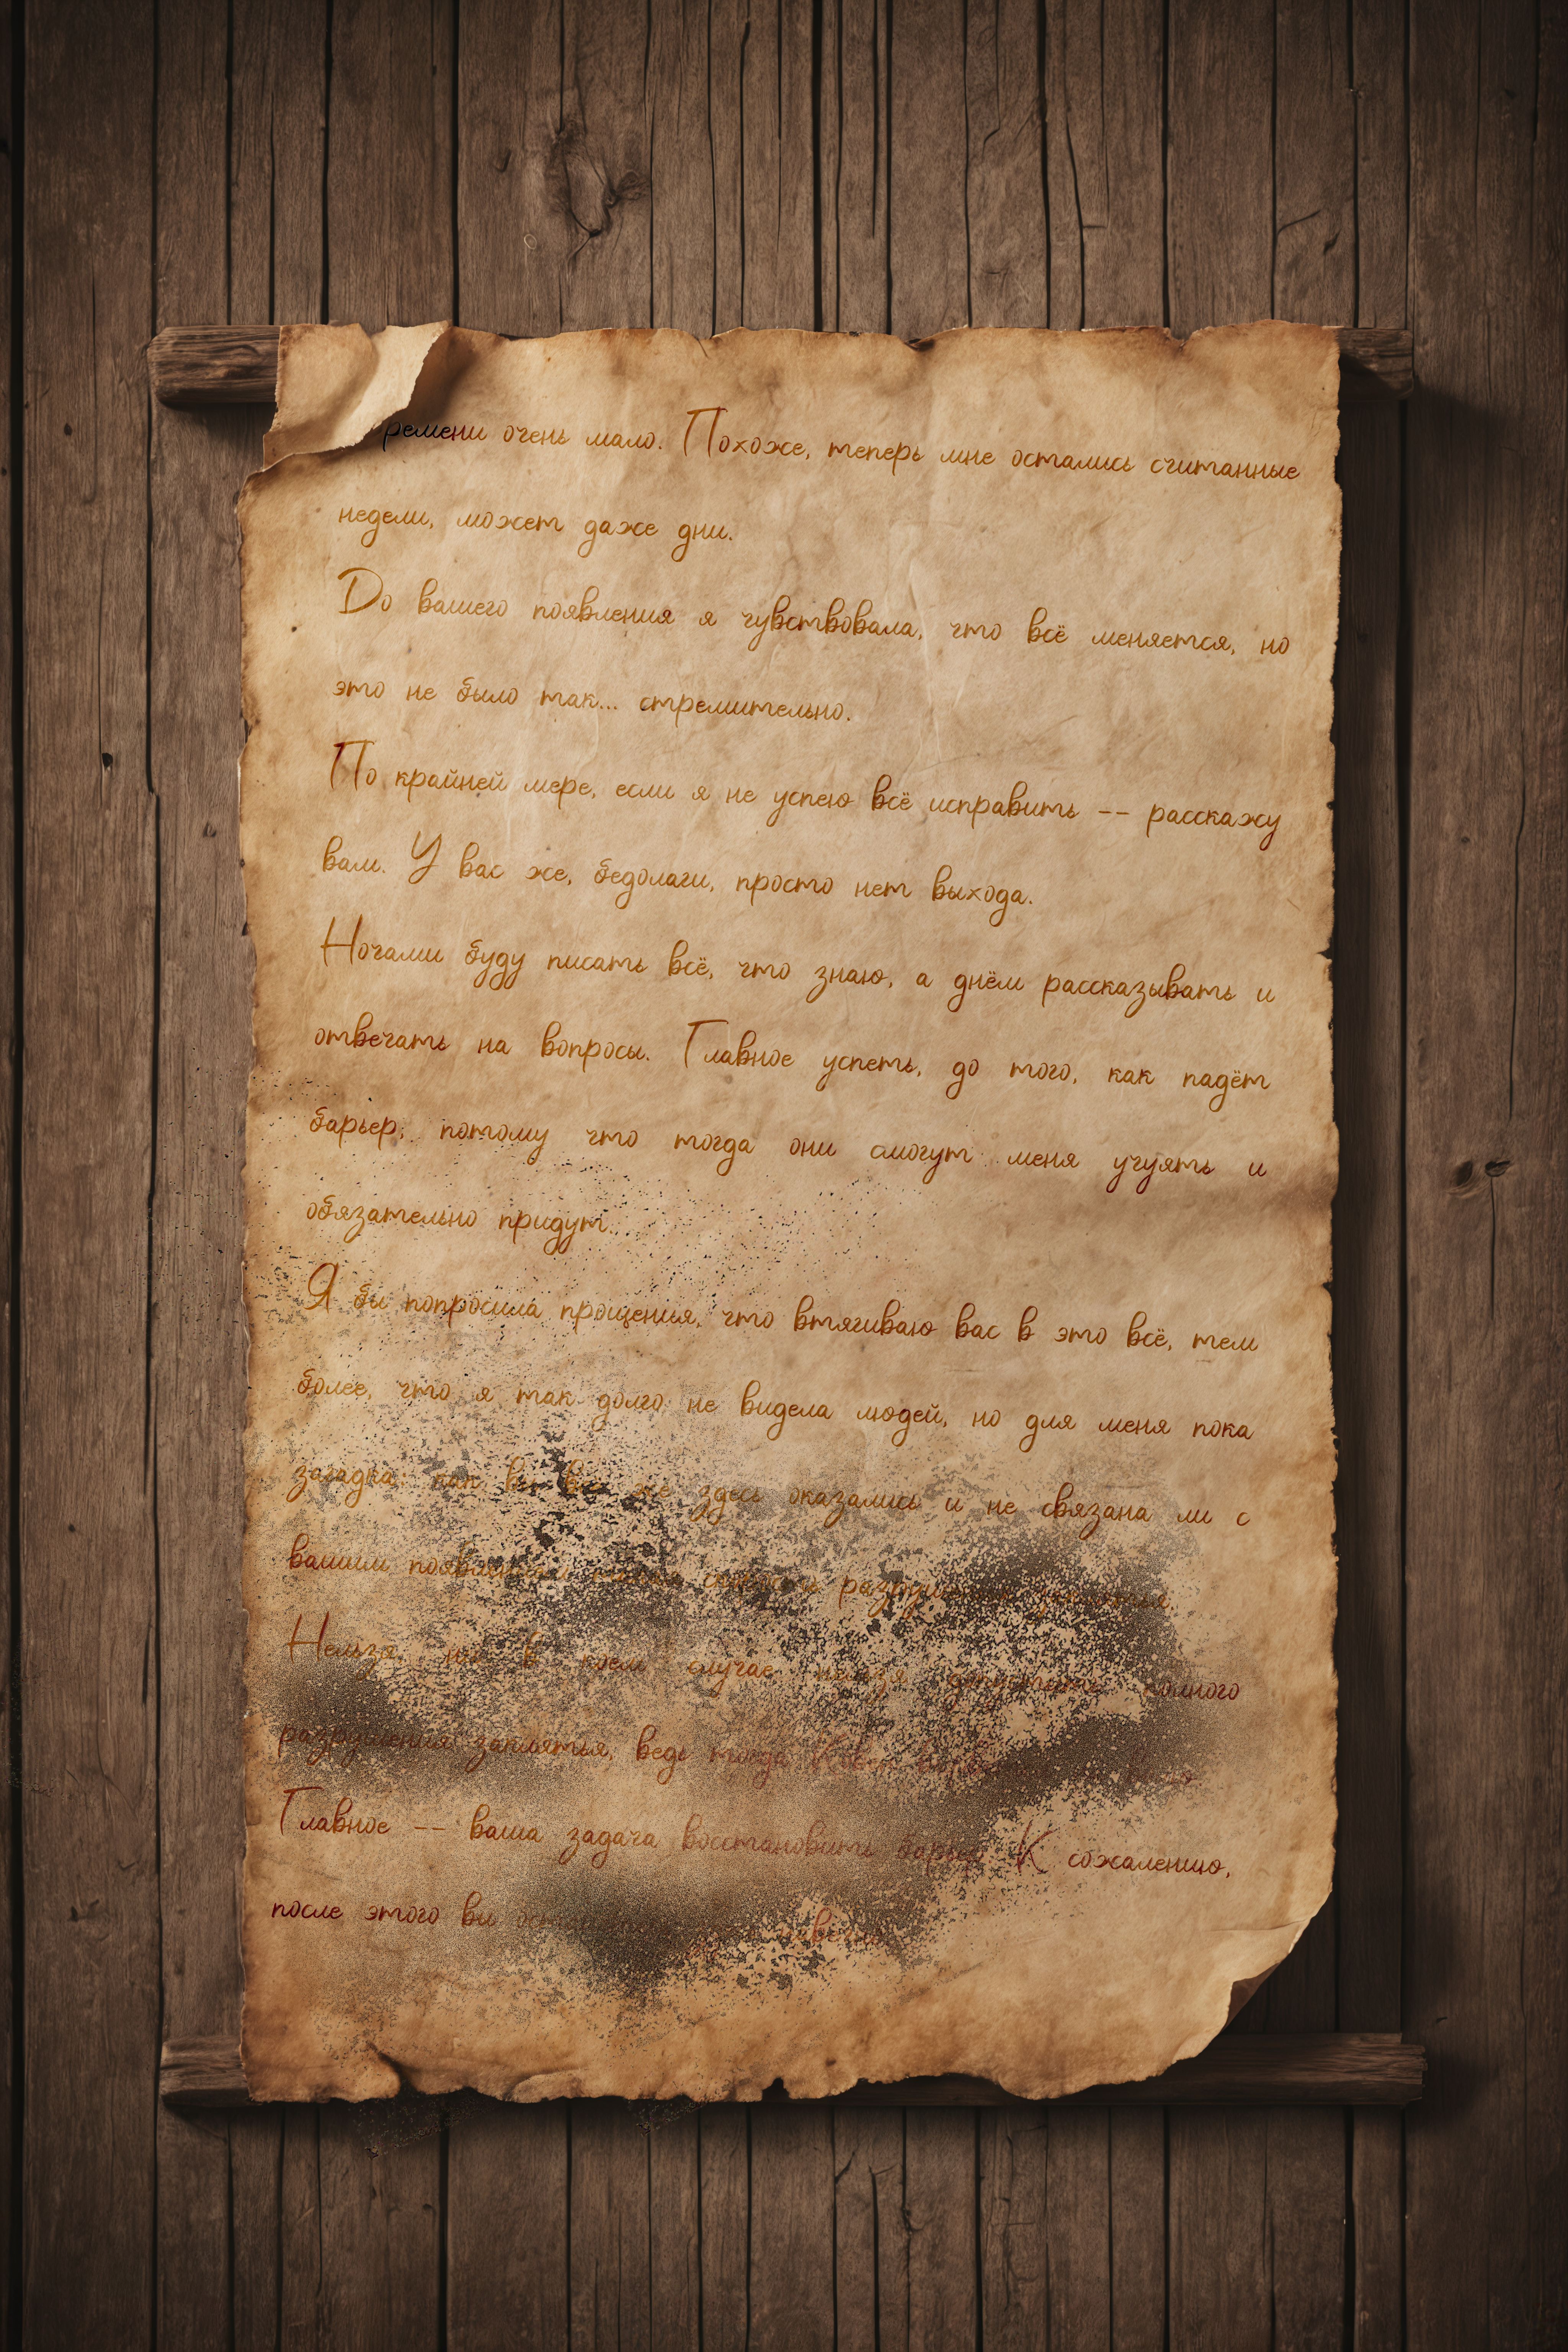 ремени очень мало. Похоже, теперь мне остались считанные
недели, может даже дни.
До вашего появления я чувствовала, что всё меняется, но
это не было так... стремительно.
По крайней мере, если я не успею всё исправить -- расскажу
вам. У вас же, бедолаги, просто нет выхода.
Ночами буду писать всё, что знаю, а днём рассказывать и
отвечать на вопросы. Главное успеть, до того, как падёт
барьер, потому что тогда они смогут меня учуять и
обязательно придут.
Я бы попросила прощения, что втягиваю вас в это всё, тем
более, что я так долго не видела людей, но для меня пока
загадка как вы все же здесь оказались и не связана ли с
вашим
Нельзя, ни в коем случае нельзя допустить полного
разрушения заклятья, ведь тогда
Главное -- ваша задача восстановить барьер К сожалению,
после этого вы